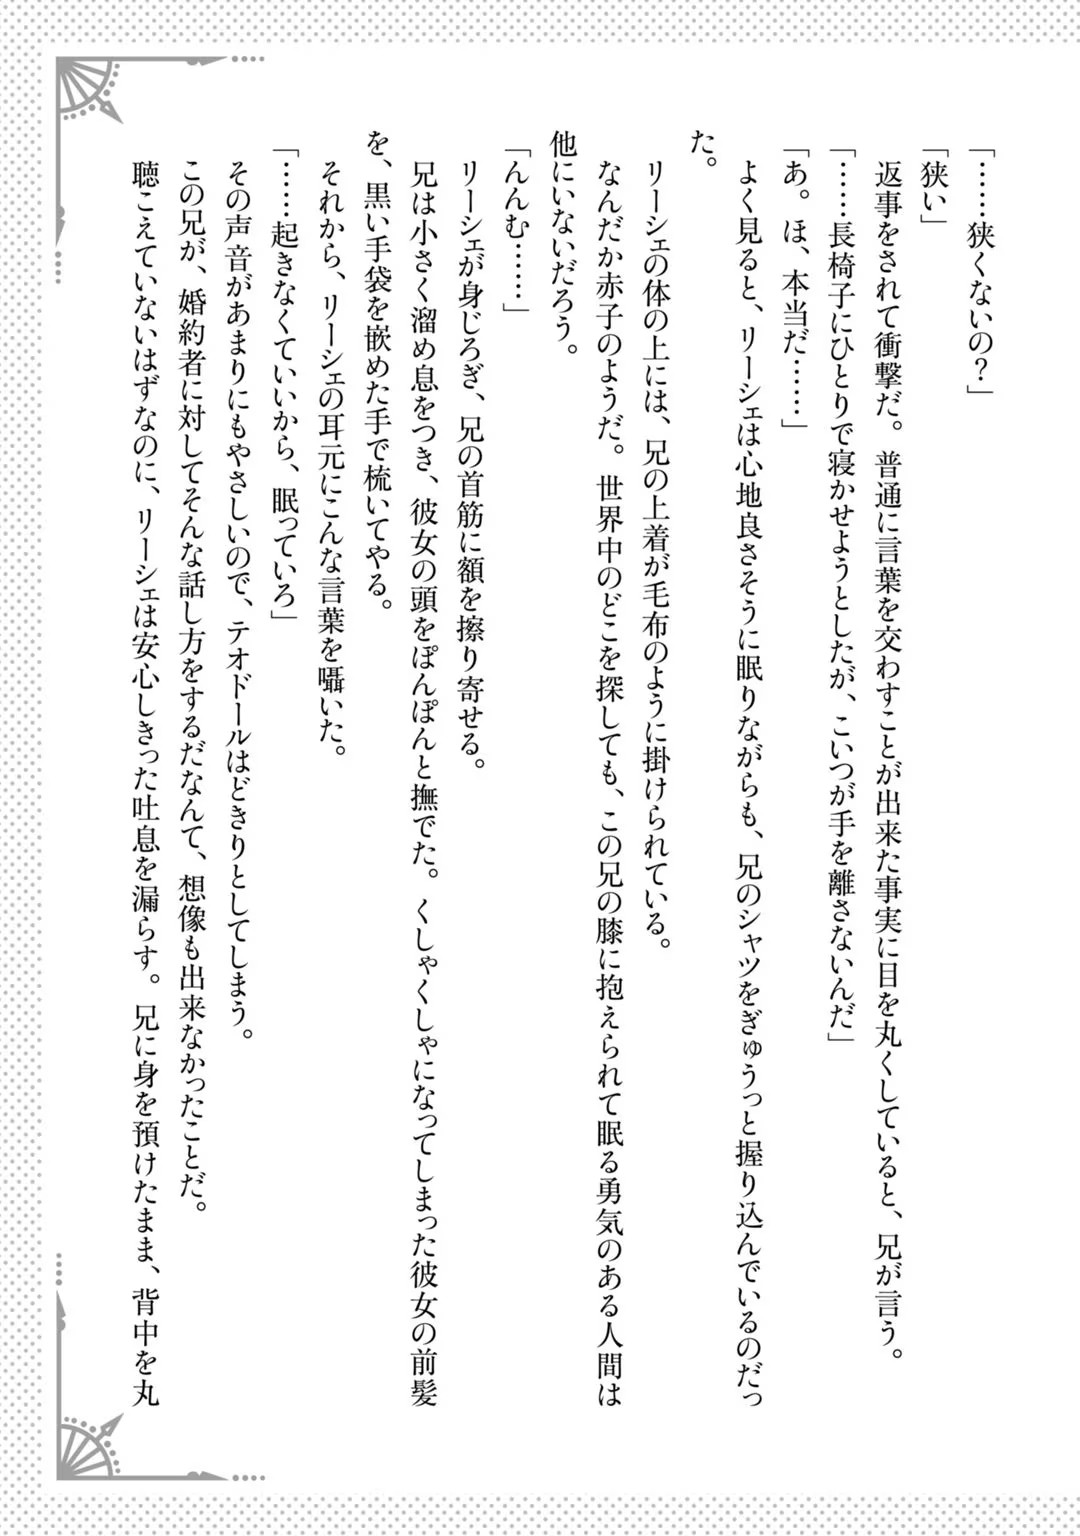 「……狭くないの？」
「狭い」
　返事をされて衝撃だ。普通に言葉を交わすことが出来た事実に目を丸くしていると、兄が言う。
「……長椅子にひとりで寝かせようとしたが、こいつが手を離さないんだ」
「あ。ほ、本当だ……」
　よく見ると、リーシェは心地良さそうに眠りながらも、兄のシャツをぎゅうっと握り込んでいるのだっ
た。
　リーシェの体の上には、兄の上着が毛布のように掛けられている。
　なんだか赤子のようだ。世界中のどこを探しても、この兄の膝に抱えられて眠る勇気のある人間は
他にいないだろう。
「んんむ……」
　リーシェが身じろぎ、兄の首筋に額を擦り寄せる。
　兄は小さく溜め息をつき、彼女の頭をぽんぽんと撫でた。くしゃくしゃになってしまった彼女の前髪
を、黒い手袋を嵌めた手で梳いてやる。
　それから、リーシェの耳元にこんな言葉を囁いた。
「……起きなくていいから、眠っていろ」
　その声音があまりにもやさしいので、テオドールはどきりとしてしまう。
　この兄が、婚約者に対してそんな話し方をするだなんて、想像も出来なかったことだ。
　聴こえていないはずなのに、リーシェは安心しきった吐息を漏らす。兄に身を預けたまま、背中を丸